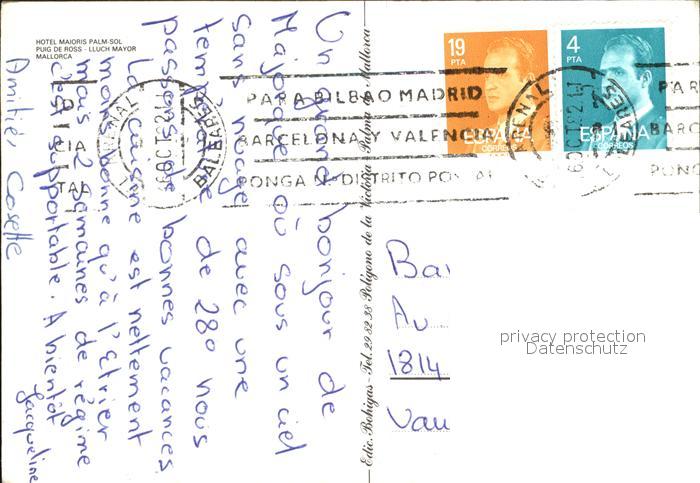 HOTEL MAIORIS PALM-SOL
PUIG DE ROSS - LLUCH MAYOR
MALLORCA
Un grand bonjour de
Majorque où sous un ciel
sans nuage avec une
température de 28° nous
passons de bonnes vacances
La cuisine est nettement
moins bonne qu'à l'Etrier
mais 2 semaines de régime
c'est supportable. A bientôt
Jacqueline
Amitiés, Cosette
Edic. Bohigas - Tel. 29 82 38 Polígono de la Victoria Palma de Mallorca
19
PTA
ESPAÑA
CORREOS
4
PTA
ESPAÑA
CORREOS
PARA BILBAO MADRID
BARCELONA Y VALENCIA
PONGA Nº DISTRITO POSTAL
ARENAL
6 OCT 82
BALEARES
PAR
BARC
PONG
Av
1814
Vau
privacy protection
Datenschutz